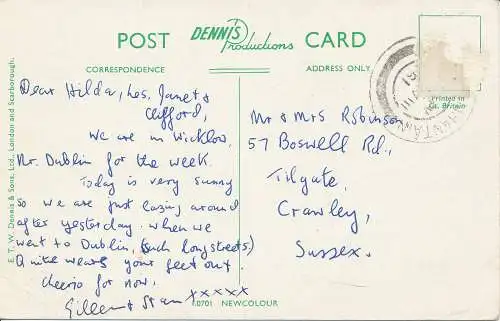 POST DENNIS Productions CARD
CORRESPONDENCE
ADDRESS ONLY
Printed in
Gt. Britain
E. T. W. Dennis & Sons, Ltd., London and Scarborough.
Dear Hilda, Les, Janet &
Clifford,
We are in Wicklow,
Nr. Dublin for the week.
Today is very sunny
so we are just lazing around
after yesterday. when we
went to Dublin, (such long streets)
Quite wears your feet out.
Cheerio for now,
Eileen & Stan xxxxx
Mr & Mrs Robinson
57 Boswell Rd.,
Tilgate,
Crawley,
Sussex.
NEWCOLOUR